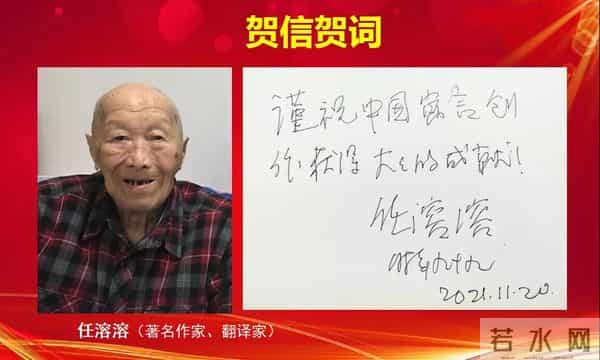 贺信贺词
谨祝中国寓言创
作获得大々的成就!
任溶溶
时年九十九
2021.11.20.
任溶溶（著名作家、翻译家）
若水网